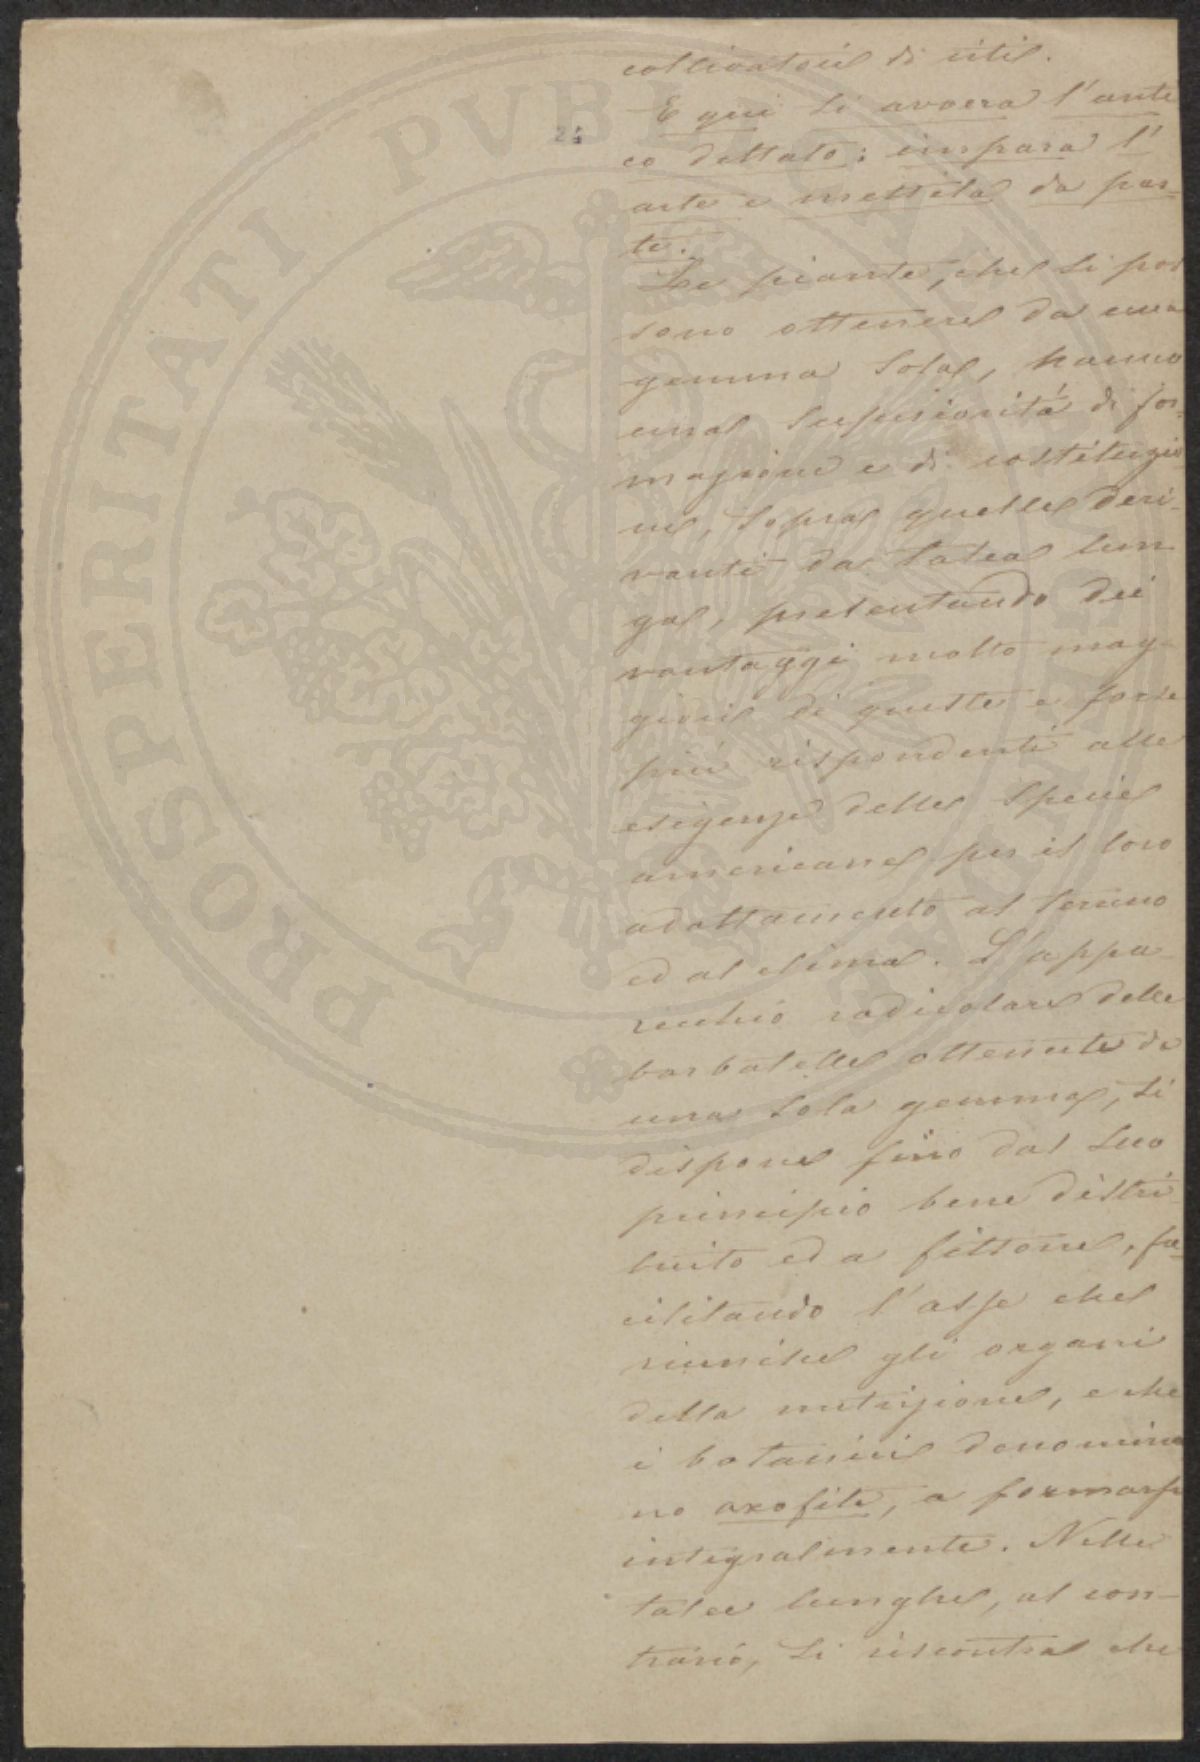 24
coltivatori di viti.
E qui si avvera l'anti
co dettato: impara l'
arte e mettila da par-
te.
Le piante, che si pos
sono ottenere da una
gemma sola, hanno
una superiorità di for-
mazione e di costituzio
ne, sopra quelle deri-
vanti da talea lun
ga, presentando dei
vantaggi molto mag-
giori di queste e forse
più rispondenti alle
esigenze delle specie
americane per il loro
adattamento al terreno
ed al clima. L'appa-
recchio radicolare delle
barbatelle ottenute da
una sola gemma, si
dispone fino dal suo
principio bene distri-
buito ed a fittone, fa-
cilitando l'asse che
riunisce gli organi
della nutrizione, e che
i botanici denomina
no axofite, a formarsi
integralmente. Nelle
talee lunghe, al con-
trario, si riscontra che
PROSPERITATI PVBLICAE